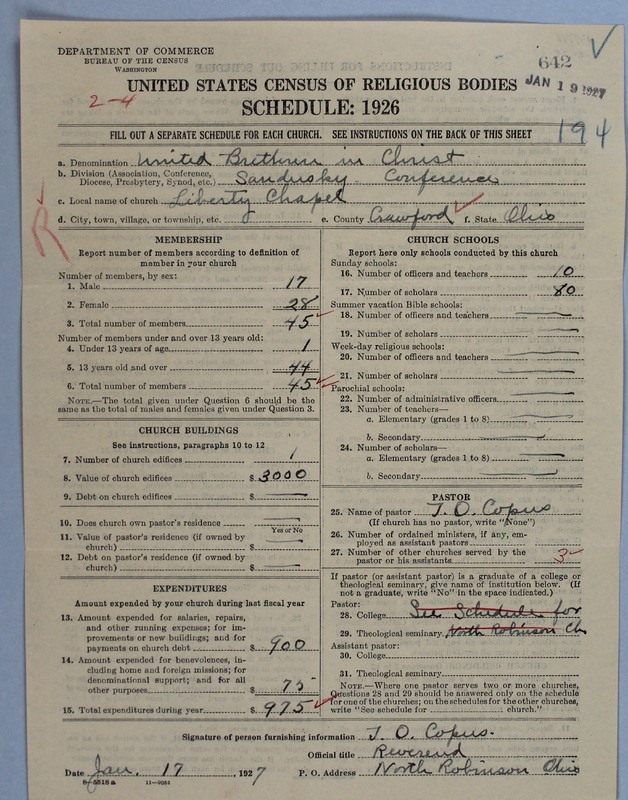 DEPARTMENT OF COMMERCE
BUREAU OF THE CENSUS
WASHINGTON
642
JAN 19 1927
UNITED STATES CENSUS OF RELIGIOUS BODIES
2-4
SCHEDULE: 1926
FILL OUT A SEPARATE SCHEDULE FOR EACH CHURCH. SEE INSTRUCTIONS ON THE BACK OF THIS SHEET
194
a. Denomination United Brethren in Christ
b. Division (Association, Conference, Diocese, Presbytery, Synod, etc.) Sandusky Conference
c. Local name of church Liberty Chapel
d. City, town, village, or township, etc. e. County Crawford f. State Ohio
R
MEMBERSHIP
Report number of members according to definition of
member in your church
Number of members, by sex:
1. Male 17
2. Female 28
3. Total number of members 45
Number of members under and over 13 years old:
4. Under 13 years of age 1
5. 13 years old and over 44
6. Total number of members 45
NOTE.—The total given under Question 6 should be
same as the total of males and females given under Question 3.
CHURCH BUILDINGS
See instructions, paragraphs 10 to 12
7. Number of church edifices 1
8. Value of church edifices $ 3000
9. Debt on church edifices $
10. Does church own pastor's residence
Yes or No
11. Value of pastor's residence (if owned by
church) $
12. Debt on pastor's residence (if owned by
church) $
EXPENDITURES
Amount expended by your church during last fiscal year
13. Amount expended for salaries, repairs,
and other running expenses; for im-
provements or new buildings; and for
payments on church debt $ 900
14. Amount expended for benevolences, in-
cluding home and foreign missions; for
denominational support; and for all
other purposes 75
15. Total expenditures during year $ 975
CHURCH SCHOOLS
Report here only schools conducted by this church
Sunday schools:
16. Number of officers and teachers 10
17. Number of scholars 80
Summer vacation Bible schools:
18. Number of officers and teachers
19. Number of scholars
Week-day religious schools:
20. Number of officers and teachers
21. Number of scholars
Parochial schools:
22. Number of administrative officers
23. Number of teachers—
a. Elementary (grades 1 to 8)
b. Secondary
24. Number of scholars—
a. Elementary (grades 1 to 8)
b. Secondary
PASTOR
25. Name of pastor J. O. Copus
(If church has no pastor, write "None")
26. Number of ordained ministers, if any, em-
ployed as assistant pastors
27. Number of other churches served by the
pastor or his assistants 3
If pastor (or assistant pastor) is a graduate of a college or
theological seminary, give name of institution below. (If
not a graduate, write "No" in the space indicated.)
Pastor:
28. College See Schedule for
29. Theological seminary North Robinson Ch
Assistant pastor:
30. College
31. Theological seminary
NOTE.—Where one pastor serves two or more churches,
Questions 28 and 29 should be answered only on the schedule
for one of the churches; on the schedules for the other churches,
write "See schedule for church."
Signature of person furnishing information J. O. Copus.
Official title Reverend
Date Jan. 17, 1927 P. O. Address North Robinson Ohio
8-5518a 11-9051